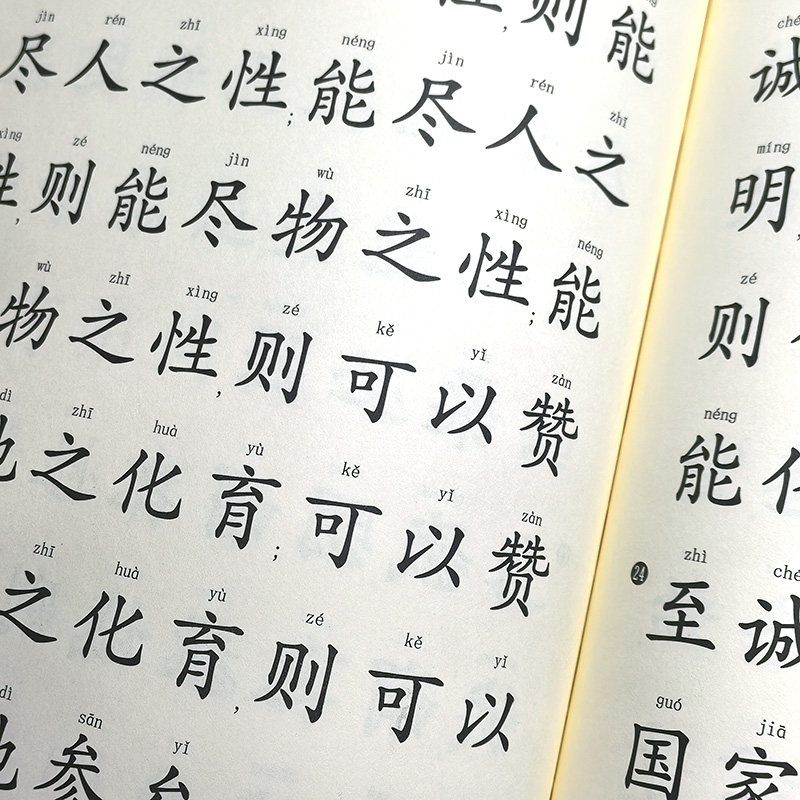 性,则能
jìn rén zhī xìng néng jìn rén zhī
尽人之性;能尽人之
xìng zé néng jìn wù zhī xìng néng
性,则能尽物之性;能
wù zhī xìng zé kě yǐ zàn
物之性,则可以赞
dì zhī huà yù kě yǐ zàn
地之化育;可以赞
zhī huà yù zé kě yǐ
之化育,则可以
dì sān yǐ
地参矣
诚
míng
明,
zé
则
néng
能化
zhì
24 至诚
guó jiā
国家